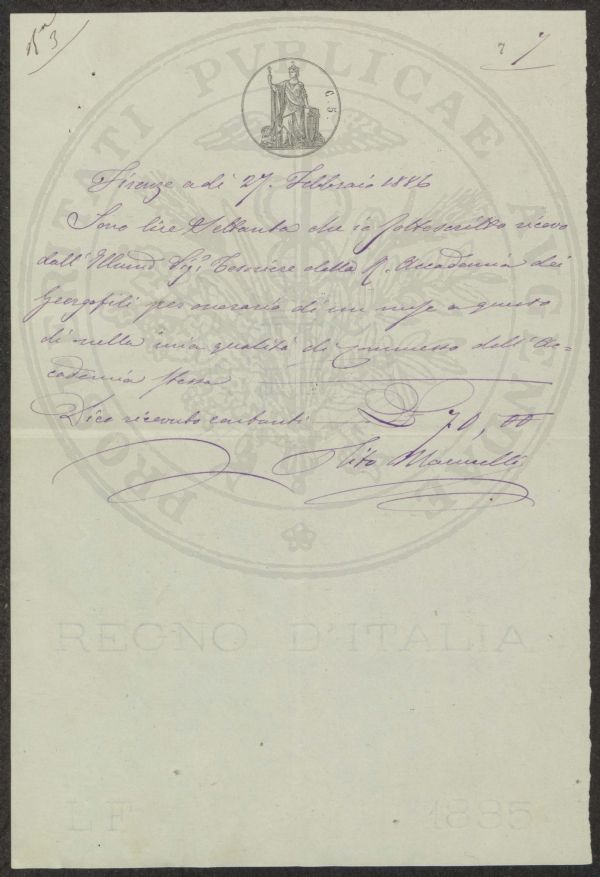 3
7 7
PROSPERITATI PVBLICAE AVGENDAE
C. 5.
Firenze a dì 27. Febbraio 1886
Sono lire Settanta che io sottoscritto ricevo
dall' Illmo Sig.r Tesoriere della R. Accademia dei
Georgofili per onorario di un mese a questo
dì nella mia qualità di Commesso dell' Ac=
cademia stessa
Dico ricevuto contanti £ 70,00
Tito
REGNO D'ITALIA
LF 1885